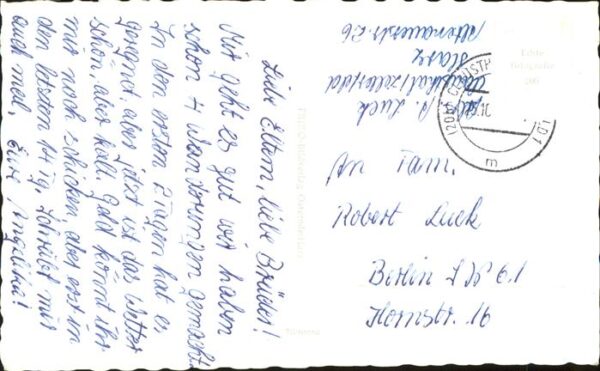 Liebe Eltern, liebe Brüder!
Mir geht es gut wir haben
schon 4 Wanderungen gemacht.
In den ersten 2 Tagen hat es
geregnet, aber jetzt ist das Wetter
schön, aber kalt. Geld könnt ihr
mir noch schicken, aber erst in
den letzten 14 Tg. Schreibt mir
auch mal, Eure Angelika!
A. Luck
Clausthal-Zellerfeld
Harz
Altenauerstr. 26
An Fam.
Robert Luck
Berlin SW 61
Hornstr. 16
Echte
Fotografie
m